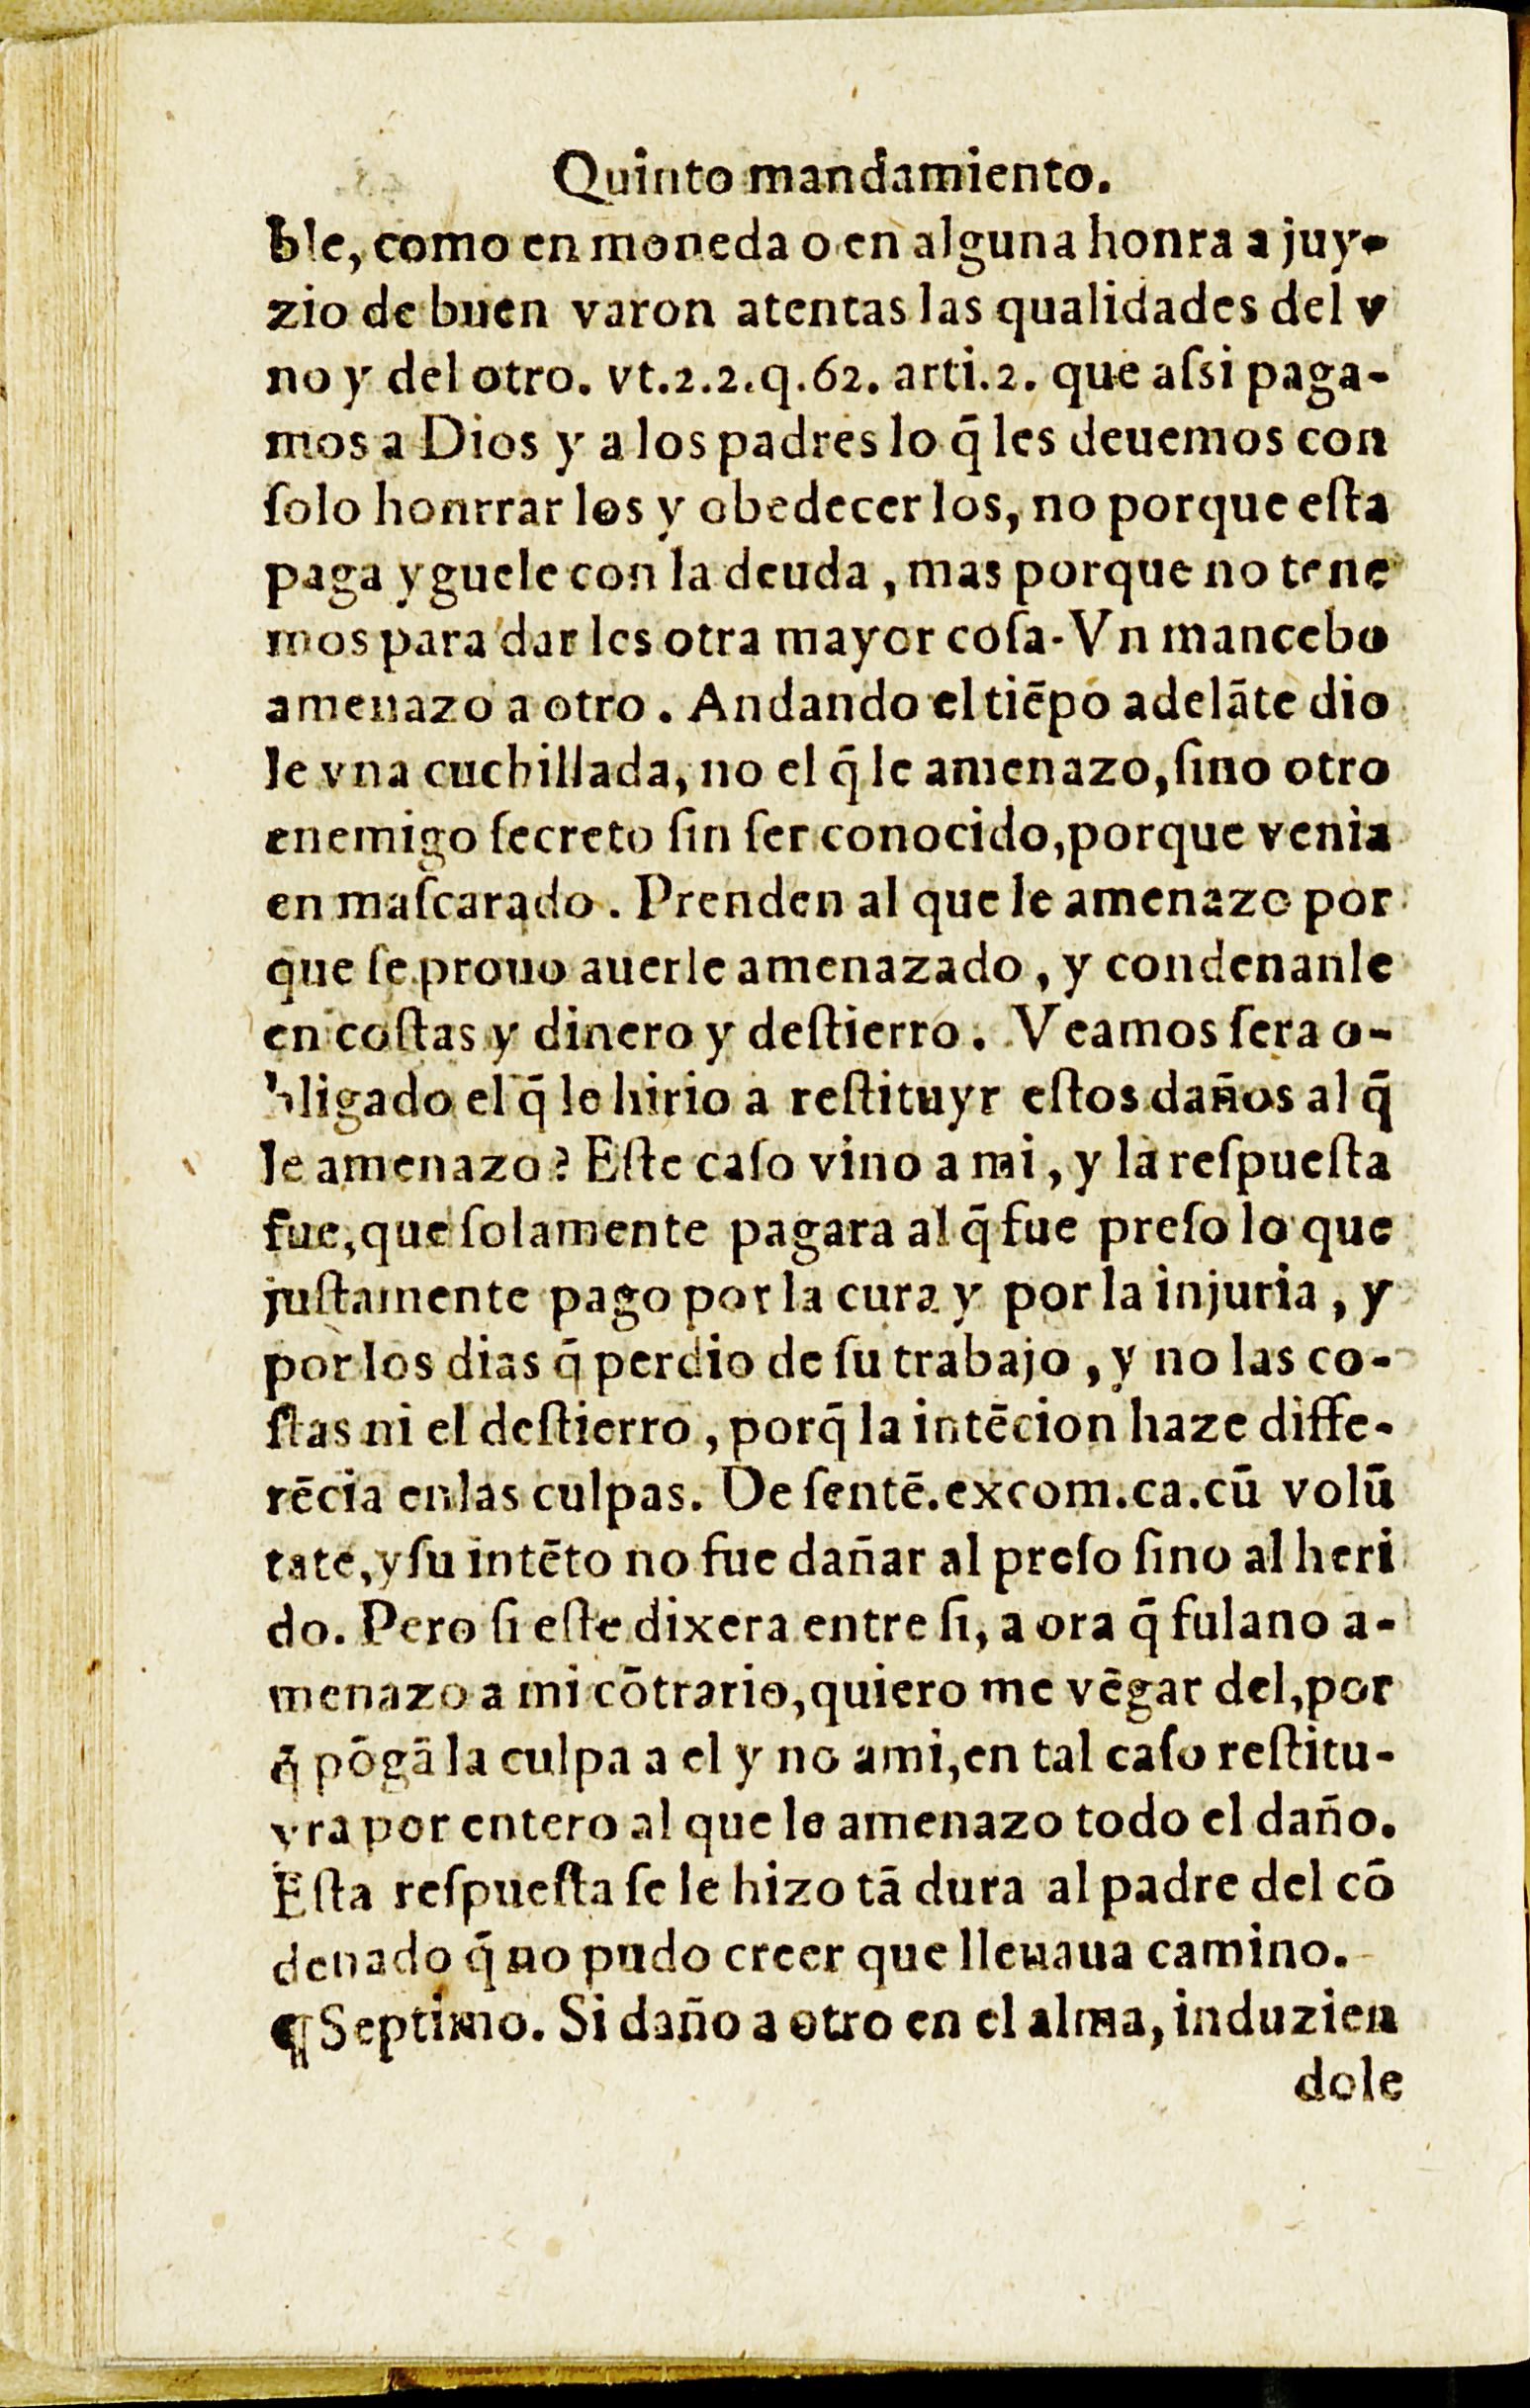 Quinto mandamiento.
ble, como en moneda o en alguna honra a juy-
zio de buen varon atentas las qualidades del v
no y del otro. vt.2.2.q.62. arti.2. que aſsi paga-
mos a Dios y a los padres lo q̃ les deuemos con
ſolo honrrar los y obedecer los, no porque eſta
paga yguele con la deuda, mas porque no tene
mos para dar les otra mayor coſa-Vn mancebo
amenazo a otro. Andando el tiẽpo adelãte dio
le vna cuchillada, no el q̃ le amenazo, ſino otro
enemigo ſecreto ſin ſer conocido, porque venia
en maſcarado. Prenden al que le amenazo por
que ſe prouo auerle amenazado, y condenanle
en coſtas y dinero y deſtierro. Veamos ſera o-
bligado el q̃ le hirio a reſtituyr eſtos daños al q̃
le amenazo? Eſte caſo vino a mi, y la reſpueſta
fue, que ſolamente pagara al q̃ fue preſo lo que
juſtamente pago por la cura y por la injuria, y
por los dias q̃ perdio de ſu trabajo, y no las co-
ſtas ni el deſtierro, porq̃ la intẽcion haze diffe-
rẽcia en las culpas. De ſentẽ.excom.ca.cũ volũ
tate, y ſu intẽto no fue dañar al preſo ſino al heri
do. Pero ſi eſte dixera entre ſi, a ora q̃ fulano a-
menazo a mi cõtrario, quiero me vẽgar del, por
q̃ põgã la culpa a el y no ami, en tal caſo reſtitu-
yra por entero al que le amenazo todo el daño.
Eſta reſpueſta ſe le hizo tã dura al padre del cõ
denado q̃ no pudo creer que lleuaua camino.
¶ Septimo. Si daño a otro en el alma, induzien
dole